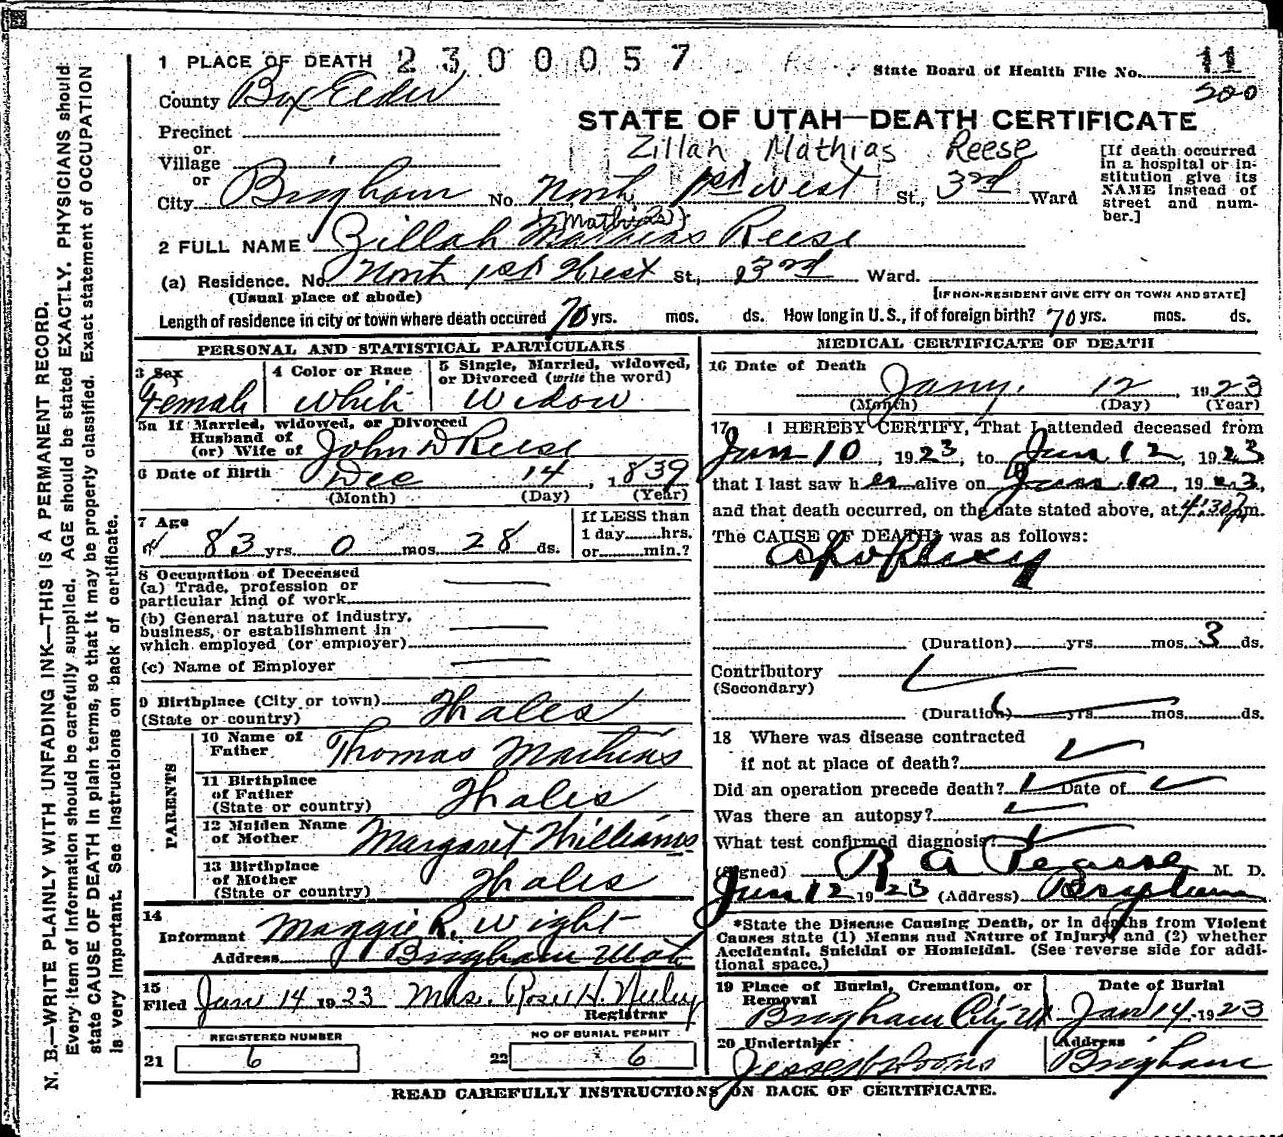 1 PLACE OF DEATH 2300057 State Board of Health File No. 11
County Box Elder 200
STATE OF UTAH—DEATH CERTIFICATE
Precinct
or
Village
or
Zillah Mathias Reese
[If death occurred in a hospital or in-
stitution give its
NAME instead of
street and num-
ber.]
City Brigham No. North 1st West St., 3rd Ward
(Mathias)
2 FULL NAME Zillah Mathias Reese
(a) Residence. No. North 1st West St., 3rd Ward.
(Usual place of abode) [IF NON-RESIDENT GIVE CITY OR TOWN AND STATE]
Length of residence in city or town where death occured 70 yrs. mos. ds. How long in U.S., if of foreign birth? 70 yrs. mos. ds.
PERSONAL AND STATISTICAL PARTICULARS
3 Sex 4 Color or Race 5 Single, Married, widowed,
or Divorced (write the word)
Female White Widow
5a If Married, widowed, or Divorced
Husband of
(or) Wife of John D Reese
6 Date of Birth Dec 14, 1839
(Month) (Day) (Year)
7 Age
83 yrs. 0 mos. 28 ds.
If LESS than
1 day hrs.
or min.?
8 Occupation of Deceased
(a) Trade, profession or
particular kind of work
(b) General nature of industry,
business, or establishment in
which employed (or employer)
(c) Name of Employer
9 Birthplace (City or town)
(State or country) Wales
PARENTS
10 Name of
Father Thomas Mathias
11 Birthplace
of Father
(State or country) Wales
12 Maiden Name
of Mother Margaret Williams
13 Birthplace
of Mother
(State or country) Wales
14
Informant Maggie R. Wight
Address Brigham Utah
15
Filed Jan 14 1923 Mrs. Rose H. Neeley
Registrar
REGISTERED NUMBER NO OF BURIAL PERMIT
21 6 22 6
MEDICAL CERTIFICATE OF DEATH
16 Date of Death
Jany. 12, 1923
(Month) (Day) (Year)
17 I HEREBY CERTIFY, That I attended deceased from
Jan 10, 1923, to Jan 12, 1923
that I last saw her alive on Jan 10, 1923,
and that death occurred, on the date stated above, at 4:30 Pm.
The CAUSE OF DEATH* was as follows:
Apoplexy
(Duration) yrs. mos. 3 ds.
Contributory
(Secondary)
(Duration) yrs. mos. ds.
18 Where was disease contracted
if not at place of death?
Did an operation precede death? Date of
Was there an autopsy?
What test confirmed diagnosis?
(Signed) R A Pearse M. D.
Jan 12 1923 (Address) Brigham
*State the Disease Causing Death, or in deaths from Violent
Causes state (1) Means and Nature of Injury, and (2) whether
Accidental, Suicidal or Homicidal. (See reverse side for addi-
tional space.)
19 Place of Burial, Cremation, or
Removal Date of Burial
Brigham City Ut Jan 14 1923
20 Undertaker Address
Brigham
READ CAREFULLY INSTRUCTIONS ON BACK OF CERTIFICATE.
N. B.—WRITE PLAINLY WITH UNFADING INK—THIS IS A PERMANENT RECORD.
Every item of information should be carefully supplied. AGE should be stated EXACTLY. PHYSICIANS should
state CAUSE OF DEATH in plain terms, so that it may be properly classified. Exact statement of OCCUPATION
is very important. See instructions on back of certificate.